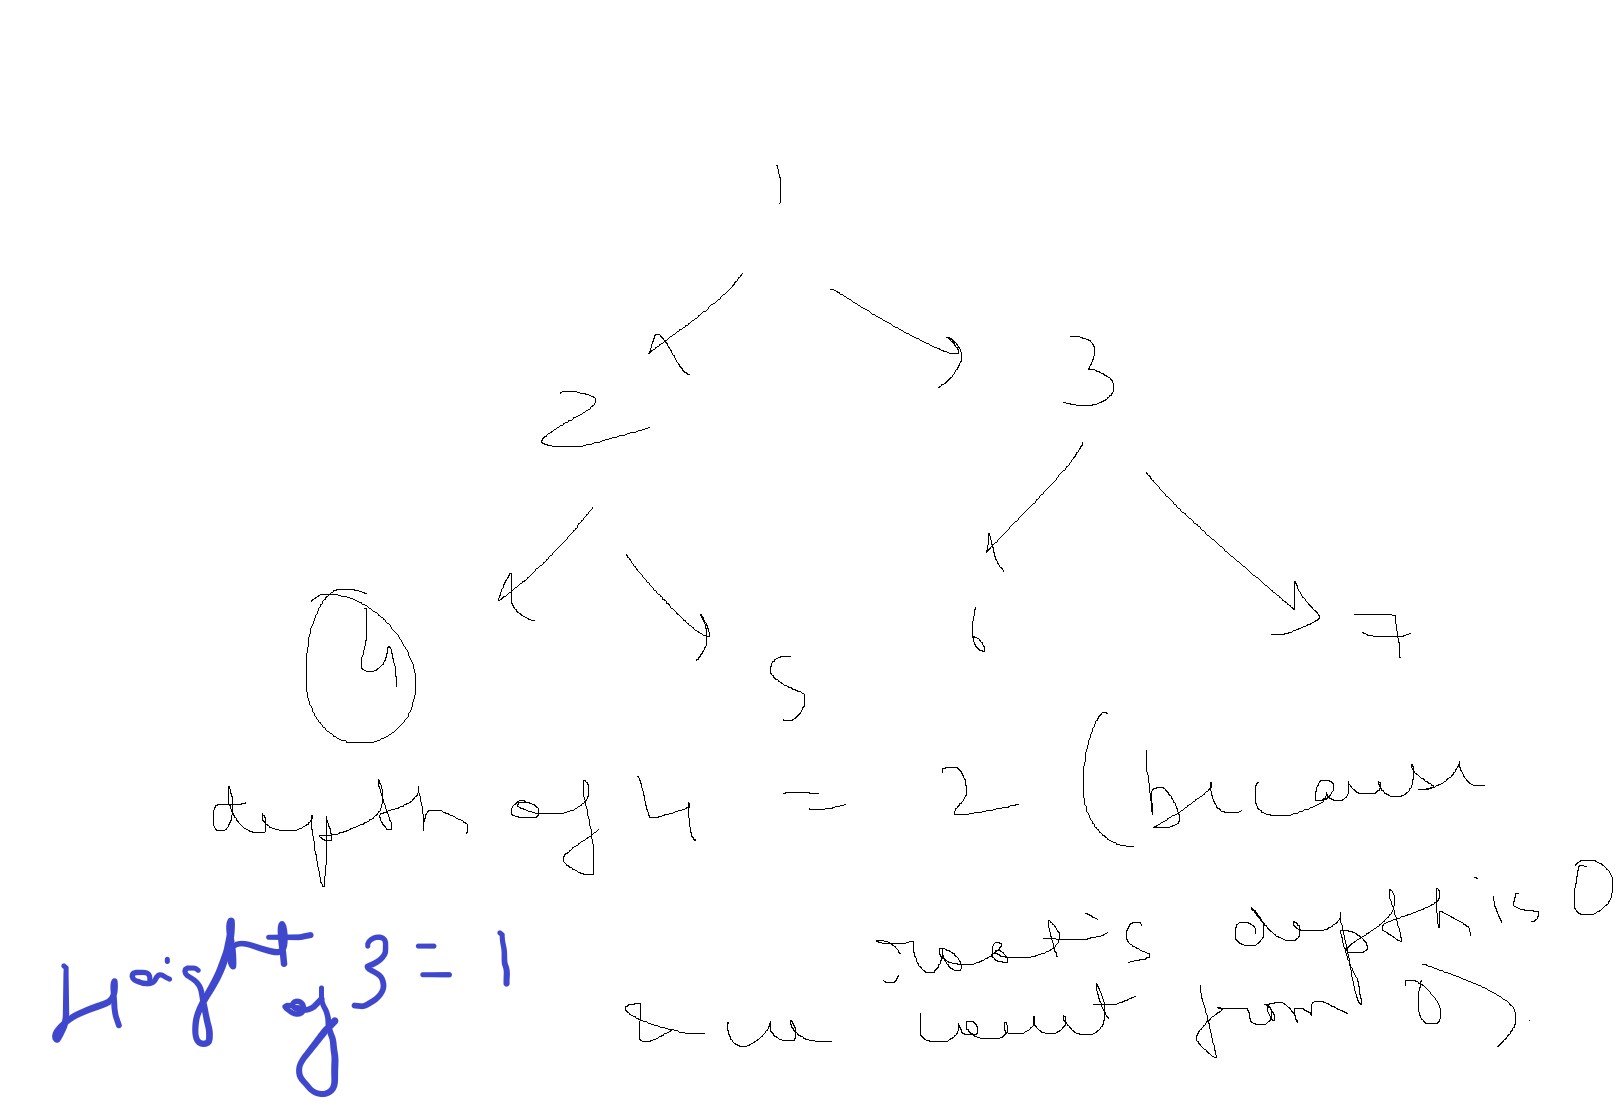 1
2
3
4
5
6
7
depth of 4 = 2 (because
root's depth is 0
& we count from 0)
Height of 3 = 1